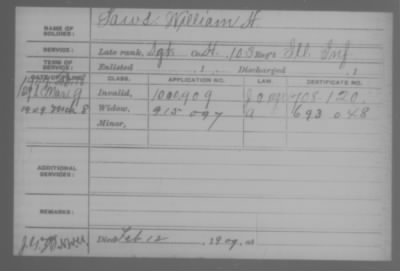 NAME OF SOLDIER: William H.
SERVICE: Late rank, Sgt Co. H, 103 Reg't Ill Inf
TERM OF SERVICE: Enlisted , 1 , Discharged , 1
DATE OF FILING. CLASS. APPLICATION NO. LAW. CERTIFICATE NO.
Invalid, 1000,909 705,120
1909 Mch 8 Widow, 915,097 a 693,048
Minor,
ADDITIONAL SERVICES:
REMARKS:
Died Feb 12, 1909, at